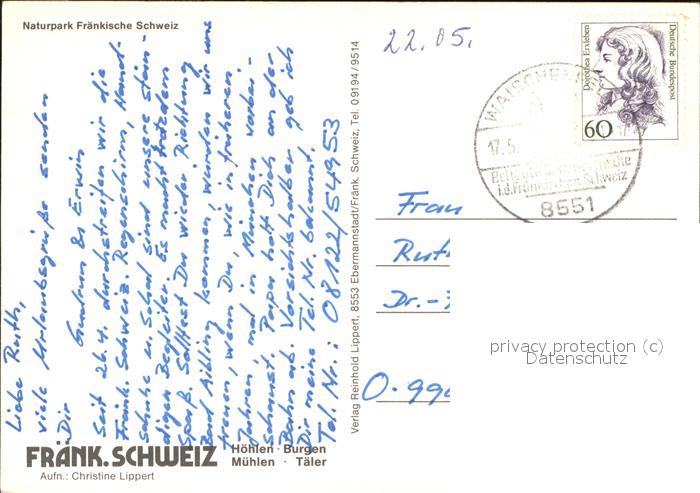 Naturpark Fränkische Schweiz
Liebe Ruth,
viele Urlaubsgrüße senden
Dir Gudrun & Erwin
Seit 26.4. durchstreifen wir die
Fränk. Schweiz. Regenschirm, Hand-
schuhe u. Schal sind unsere stän-
digen Begleiter. Es macht trotzdem
Spaß. Solltest Du wieder Richtung
Bad Aibling kommen würden wir uns
freuen, wenn Du, wie in früheren
Jahren, mal in München vorbei-
schaust. Papa holt Dich an der
Bahn ab. Vorsichtshalber geb ich
Dir meine Tel. Nr. bekannt.
Tel. Nr.: 08122/54953
FRÄNK. SCHWEIZ
Höhlen · Burgen
Mühlen · Täler
Aufn.: Christine Lippert
Verlag Reinhold Lippert, 8553 Ebermannstadt/Fränk. Schweiz, Tel. 09194/9514
22.05.
Dorothea Erxleben
Deutsche Bundespost
60
17.5.
i.d. Fränkischen Schweiz
8551
Frau
Ruth
Dr.-
O-99
privacy protection (c)
Datenschutz